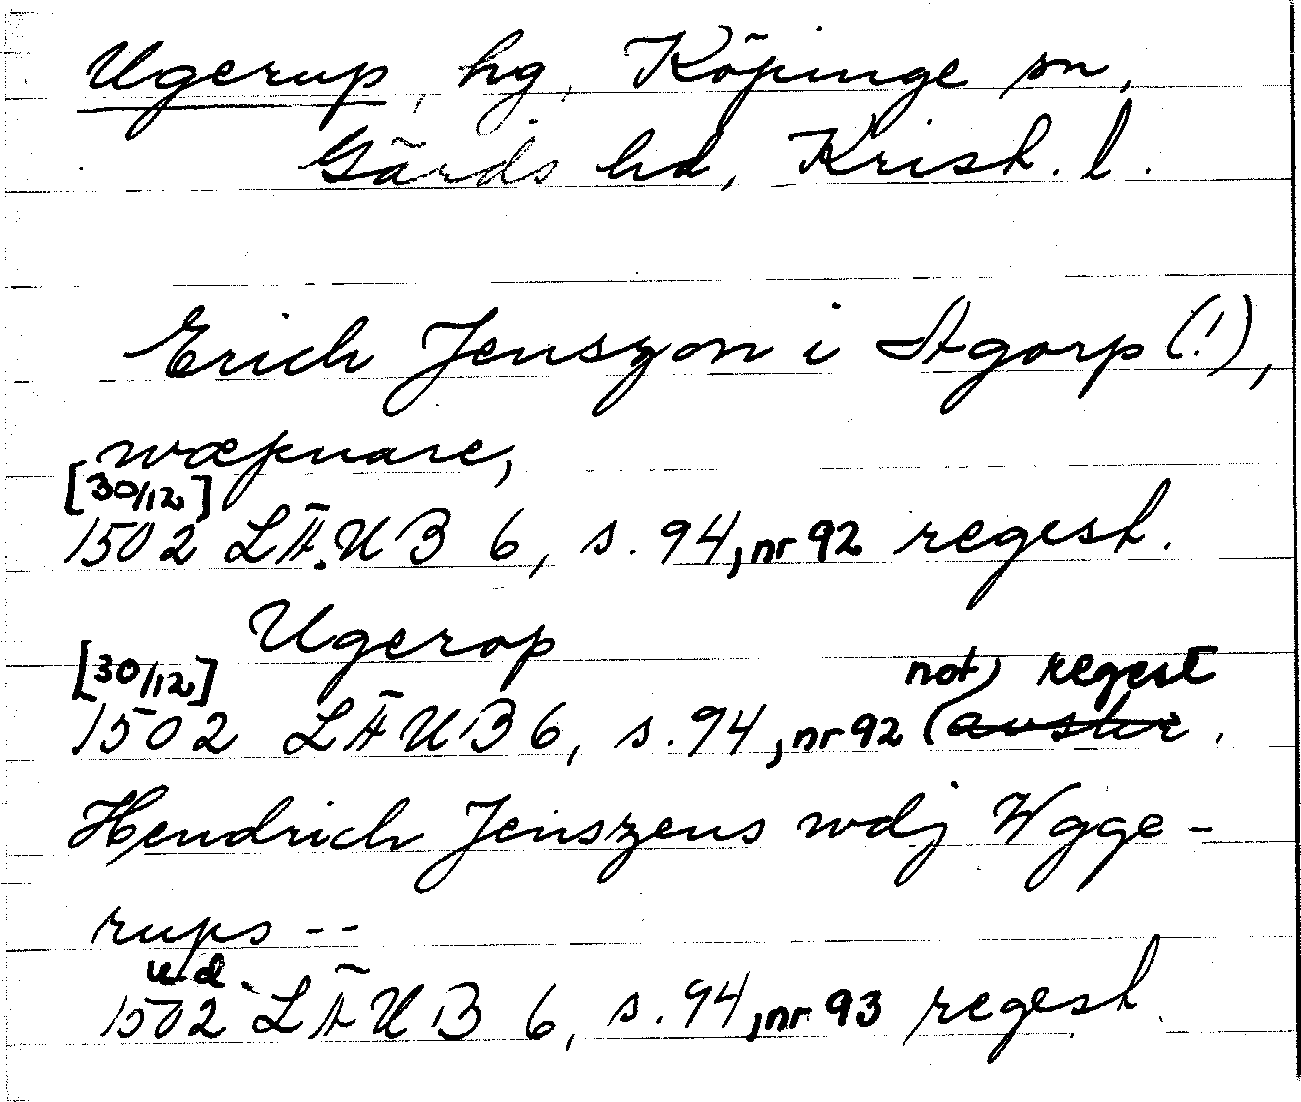 Ugerup, hg, Köpinge sn,
Gärds hd, Krist. l.
Erich Jenszon i Agorp (!),
wæpnare,
[30/12]
1502 LÄUB 6, s. 94, nr 92 regest.
Ugerop
[30/12] not) regest
1502 LÄUB 6, s. 94, nr 92 (avskr.
Hendrich Jenszens wdj Wgge-
rups --
u.d.
1502 LÄUB 6, s. 94, nr 93 regest